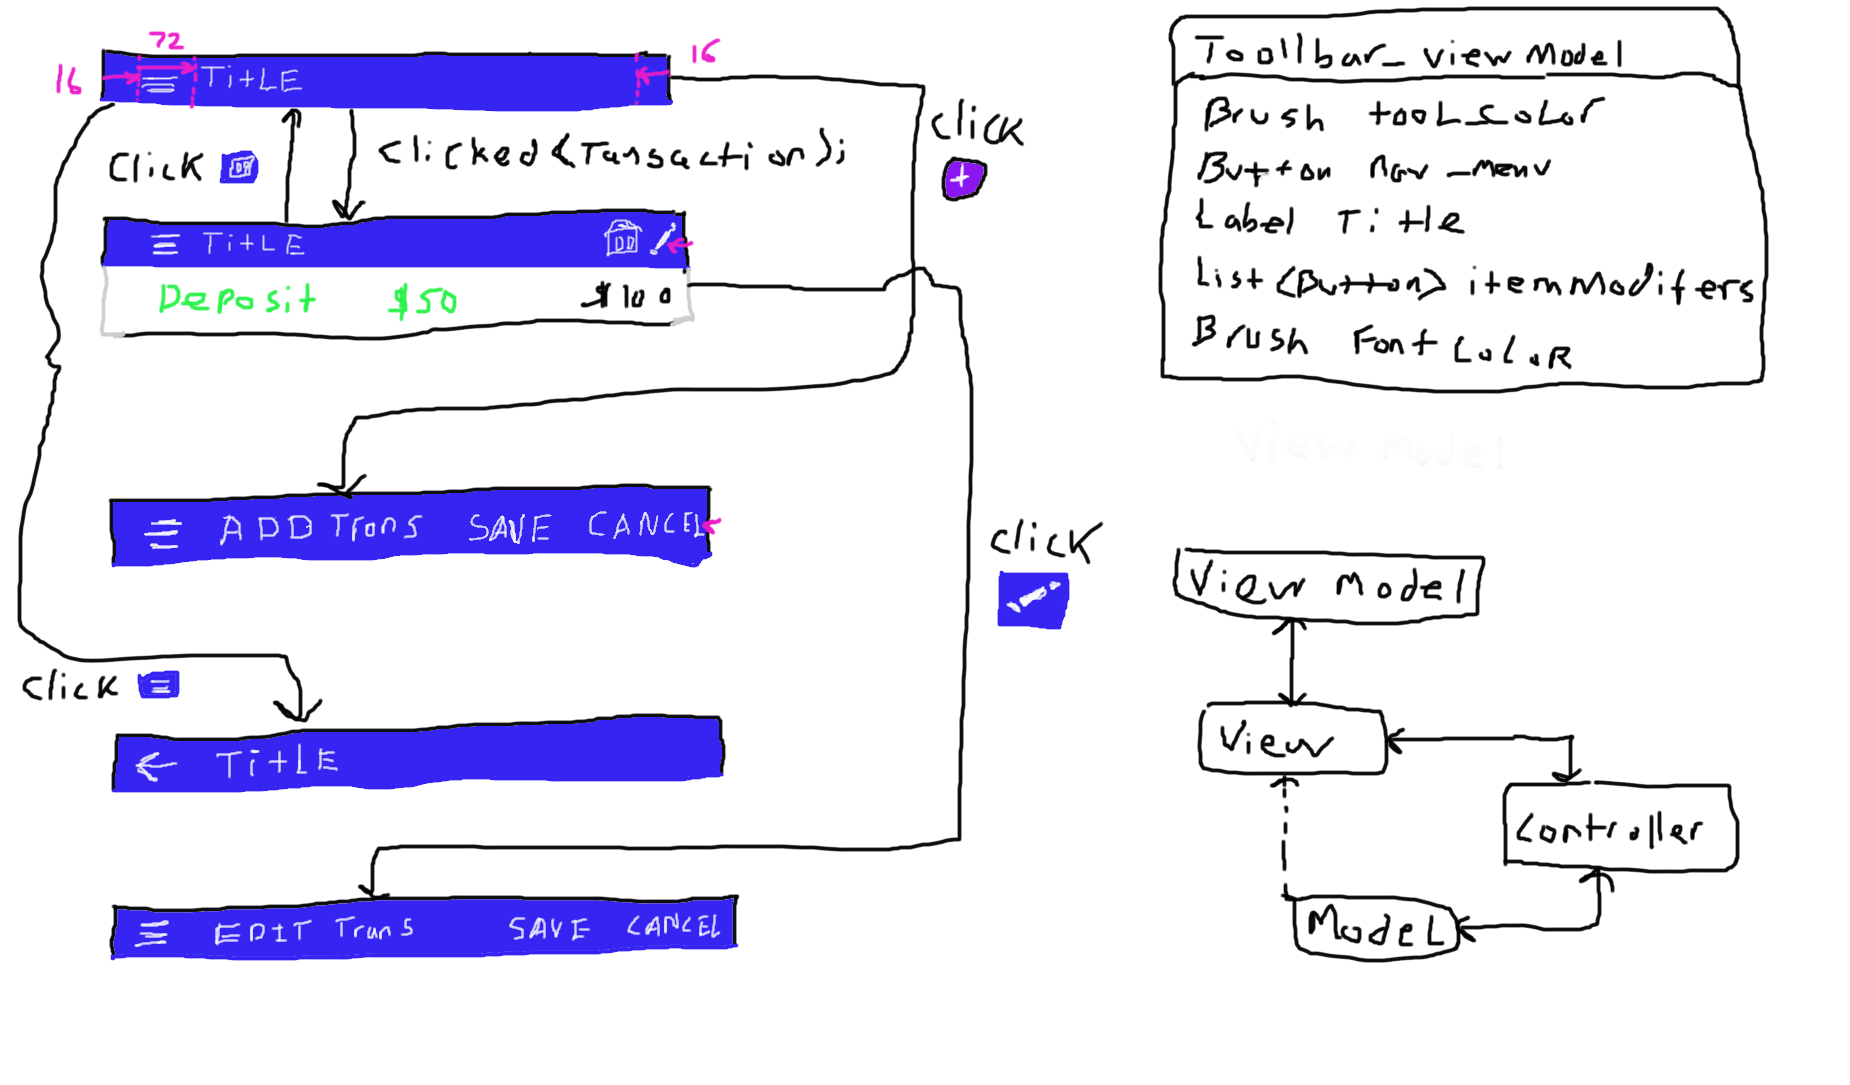 72
16
16
TitLE
Click
Clicked (Tansaction);
Click
+
TitLE
Deposit $50 $100
ADD Trans SAVE CANCEL
Click
Click
TitLE
EDIT Trans SAVE CANCEL
Toollbar_ view Model
Brush tooL_CoLor
Button Nav_menu
Label Title
List(Button) itemModifers
Brush Font CoLoR
View Model
View Model
View
Controller
ModeL